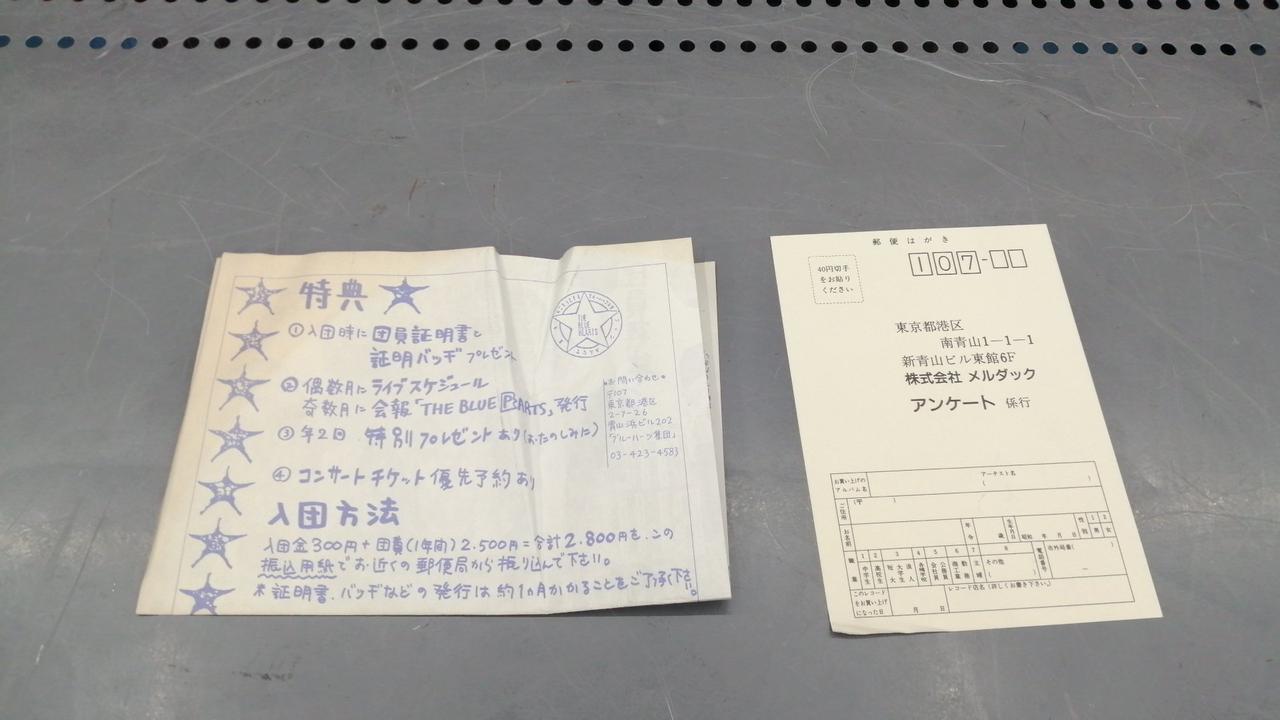 特典
①入団時に団員証明書と
証明バッヂプレゼント
②偶数月にライブスケジュール
奇数月に会報「THE BLUE PEARTS」発行
③年2回 特別プレゼントあり(おたのしみに)
④コンサートチケット優先予約あり
入団方法
入団金300円+団費(1年間)2.500円=合計2.800円を、この
振込用紙でお近くの郵便局から振り込んで下さい。
※証明書、バッヂなどの発行は約1ヵ月かかることをご了承下さい。
THE
BLUE
HEARTS
お問い合わせ
〒107
東京都港区
2-7-26
青山浜ビル202
「ブルーハーツ集団」
03-423-4583
郵便はがき
40円切手
をお貼り
ください
107-
東京都港区
南青山1-1-1
新青山ビル東館6F
株式会社 メルダック
アンケート 係行
お買い上げの
アルバム名
アーチスト名
( )
ご住所
(〒 )
お名前
年令
歳
生年月日
昭和 年 月 日
性別
1 男
2 女
職業
1 中学生
2 高校生
3 大学生 短大
4 各種学校
5 会社員 公務員
6 商工業
7 主婦
8 その他
( )
電話番号
市外局番( )
このレコード
をお買い上げ
になった日
月 日
レコード店名(詳しくお書き下さい。)